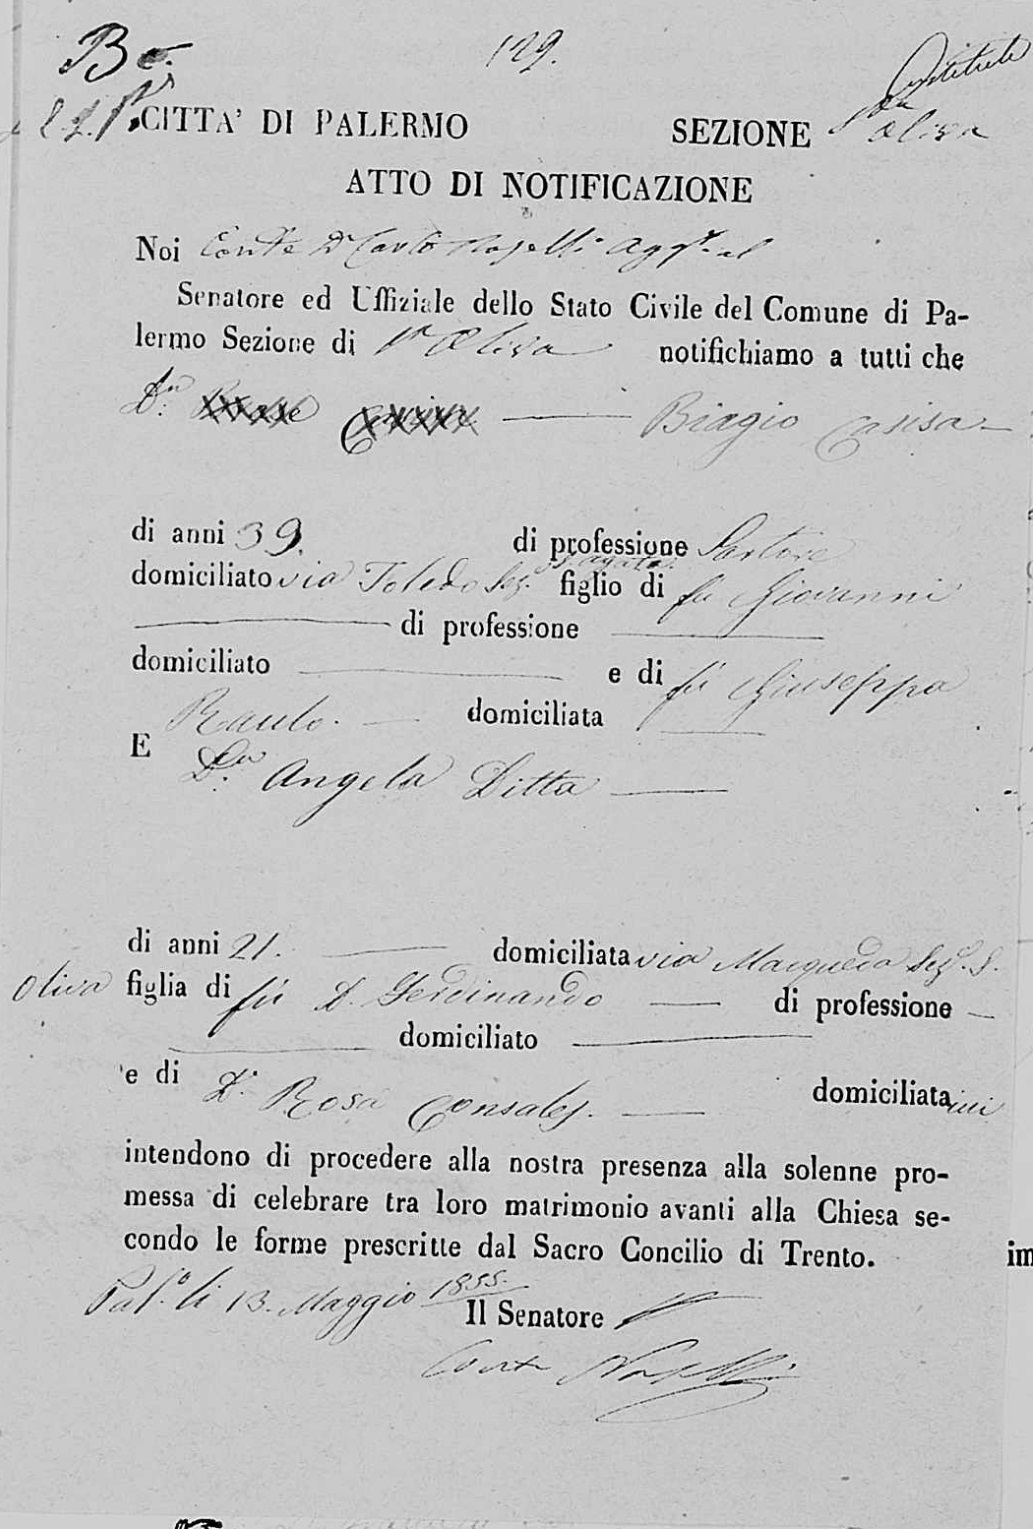 Be. 129.
CITTA' DI PALERMO SEZIONE Sta Oliva
ATTO DI NOTIFICAZIONE
Noi Conte Dn Carlo Naselli Aggto al
Senatore ed Uffiziale dello Stato Civile del Comune di Pa-
lermo Sezione di Sta Oliva notifichiamo a tutti che
Dn Biagio Casisa
di anni 39. di professione Sartore
S. Agata
domiciliato via Toledo Sez. figlio di fu Giovanni
di professione
domiciliato e di fu Giuseppa
Raulo. domiciliata
E
Dn. Angela Ditta
di anni 21. domiciliata via Macqueda Sez. S.
Oliva figlia di fu D. Ferdinando di professione
domiciliato
e di Da. Rosa Consales. domiciliata ivi
intendono di procedere alla nostra presenza alla solenne pro-
messa di celebrare tra loro matrimonio avanti alla Chiesa se-
condo le forme prescritte dal Sacro Concilio di Trento. im
Palo. li 13. Maggio 1855.
Il Senatore
Conte Naselli